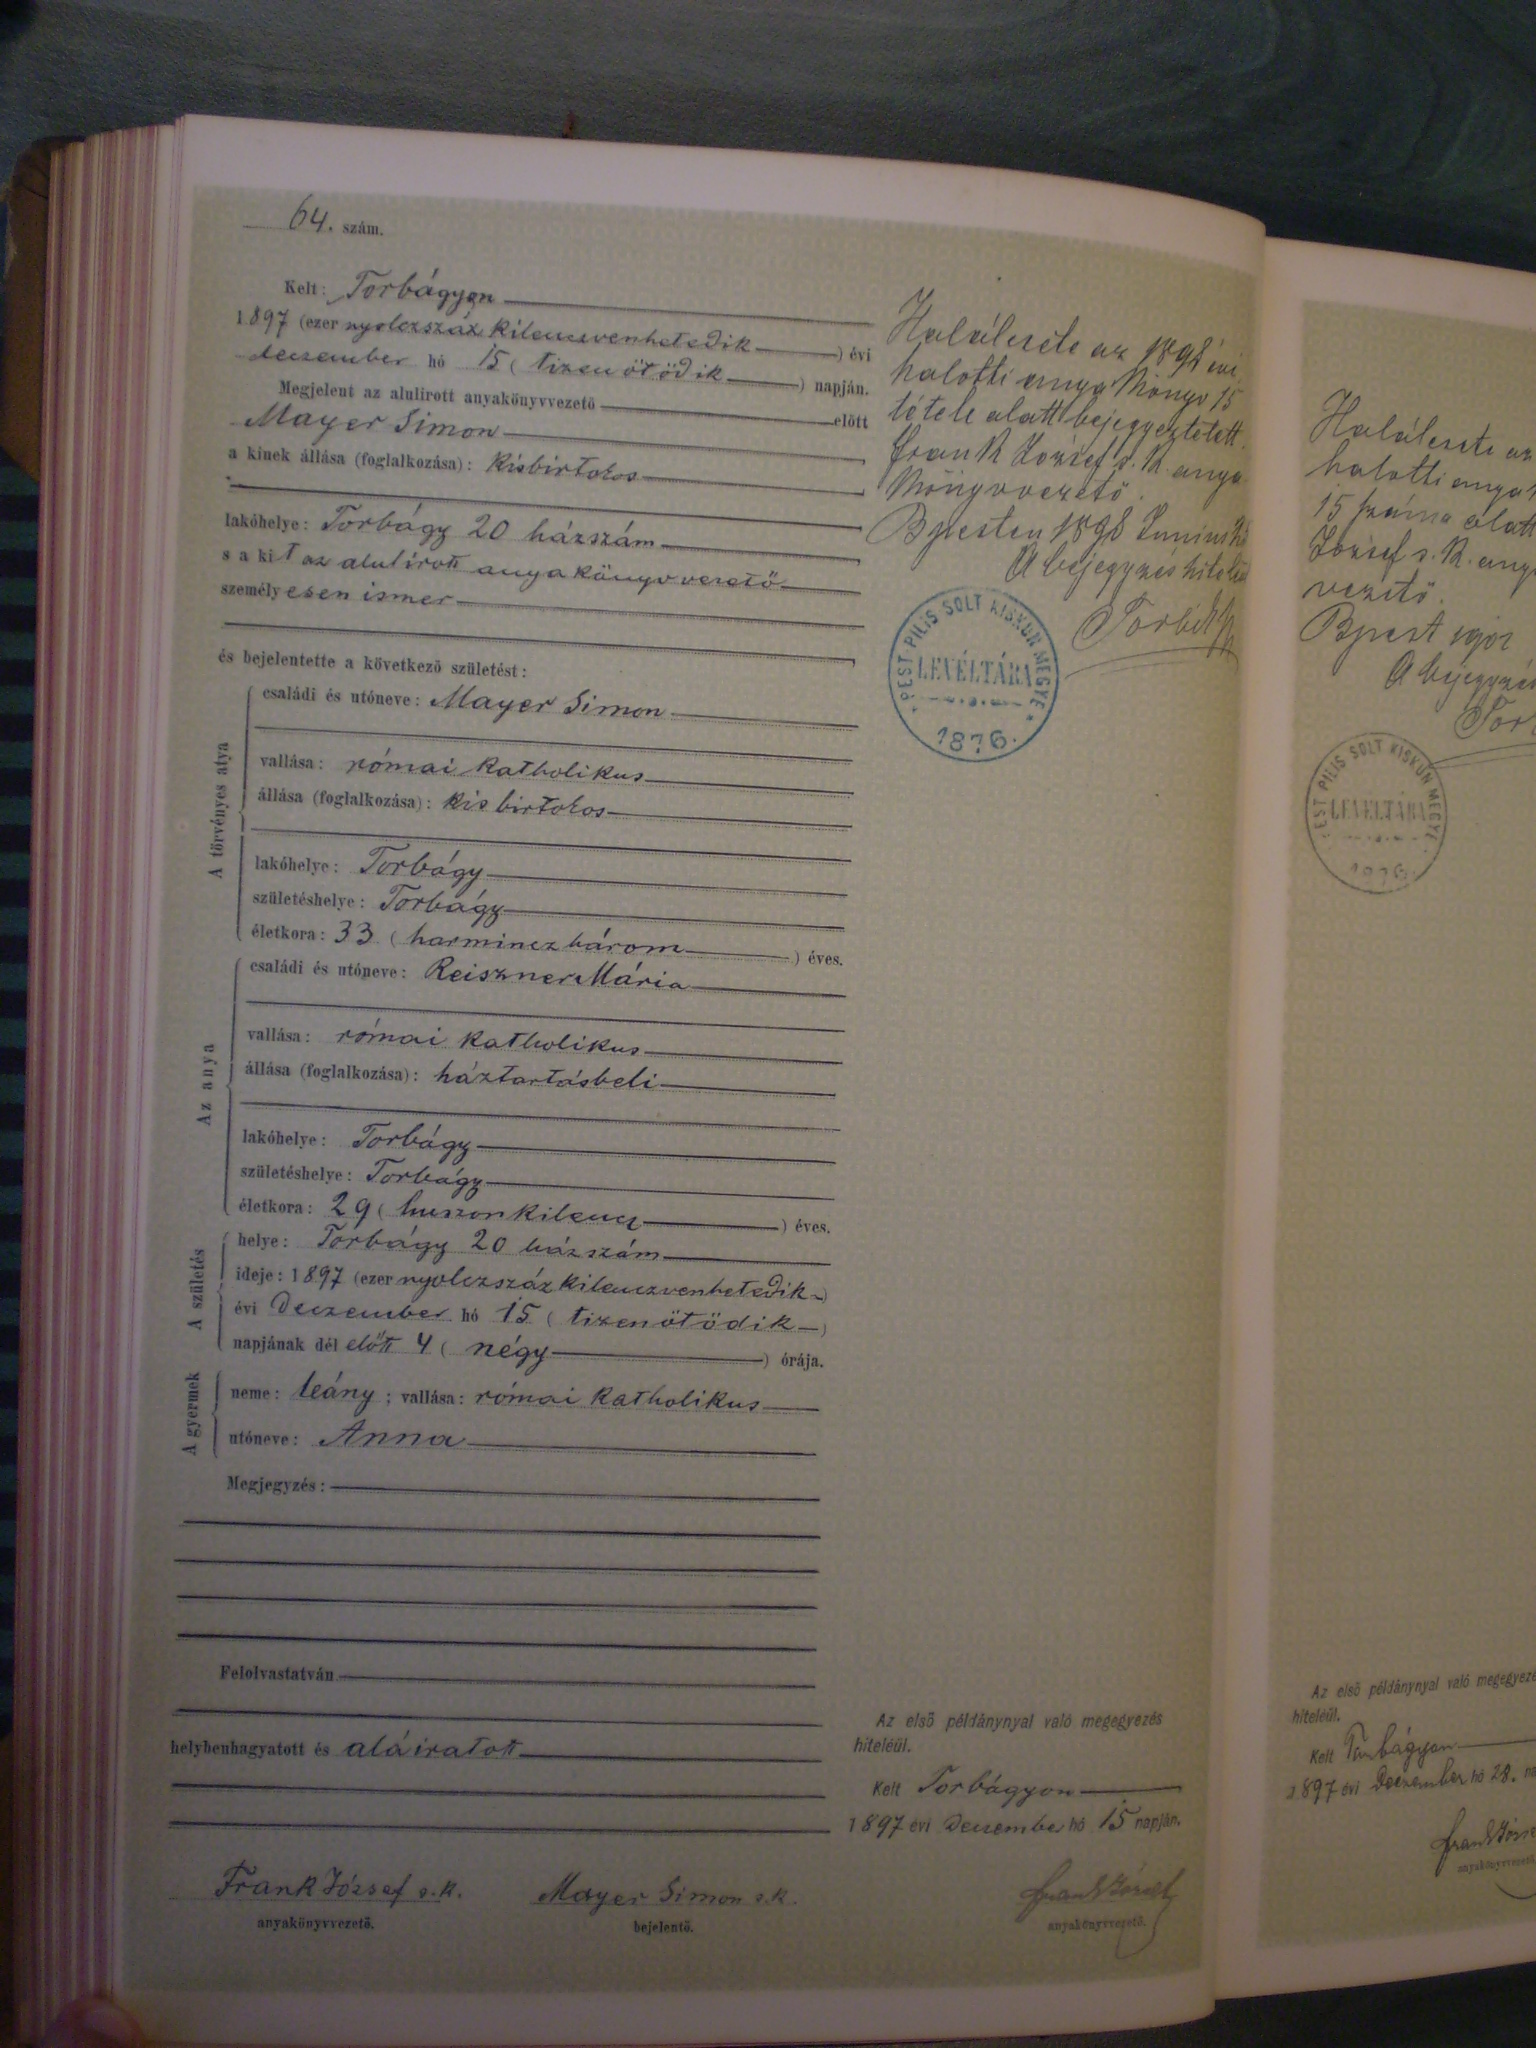 64. szám.
Kelt: Torbágyon
1897 (ezer nyolczszáz kilenczvenhetedik) évi
deczember hó 15 (tizenötödik) napján.
Megjelent az alulirott anyakönyvvezető előtt
Mayer Simon
a kinek állása (foglalkozása): kisbirtokos
lakóhelye: Torbágy 20 házszám
s a kit az alulirott anyakönyvvezető
személyesen ismer
és bejelentette a következő születést:
A törvényes atya
családi és utóneve: Mayer Simon
vallása: római katholikus
állása (foglalkozása): kisbirtokos
lakóhelye: Torbágy
születéshelye: Torbágy
életkora: 33 (harminczhárom) éves.
Az anya
családi és utóneve: Reiszner Mária
vallása: római katholikus
állása (foglalkozása): háztartásbeli
lakóhelye: Torbágy
születéshelye: Torbágy
életkora: 29 (huszonkilencz) éves.
A születés
helye: Torbágy 20 házszám
ideje: 1897 (ezer nyolczszáz kilenczvenhetedik)
évi Deczember hó 15 (tizenötödik)
napjának dél előtt 4 (négy) órája.
A gyermek
neme: leány; vallása: római katholikus
utóneve: Anna
Megjegyzés:
Felolvastatván
helybenhagyatott és aláiratott
Frank József s. k.
anyakönyvvezető.
Mayer Simon s. k.
bejelentő.
Halálesete az 1898 évi
halotti anyakönyv 15
tétele alatt bejegyeztetett.
Frank József s. k. anya
könyvvezető.
Bpesten 1898 Junius
A bejegyzés hiteléül
PEST PILIS SOLT KISKUN MEGYE
LEVÉLTÁRA
1876.
Az első példánynyal való megegyezés
hiteléül.
Kelt Torbágyon
1897 évi Deczember hó 15 napján.
Frank József
anyakönyvvezető.
Halálesete az
halotti anyak
15 száma alatt
József s. k. any
vezető.
Bpest
A bejegyzés
PEST PILIS SOLT KISKUN MEGYE
LEVÉLTÁRA
1876.
Az első példánynyal való megegyezé
hiteléül.
Kelt Torbágyon
1897 évi Deczember hó 28. na
Frank Józse
anyakönyvvezető.